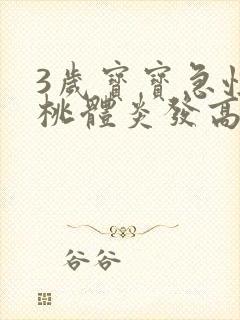 3歲寶寶急性
桃體炎發高
谷谷